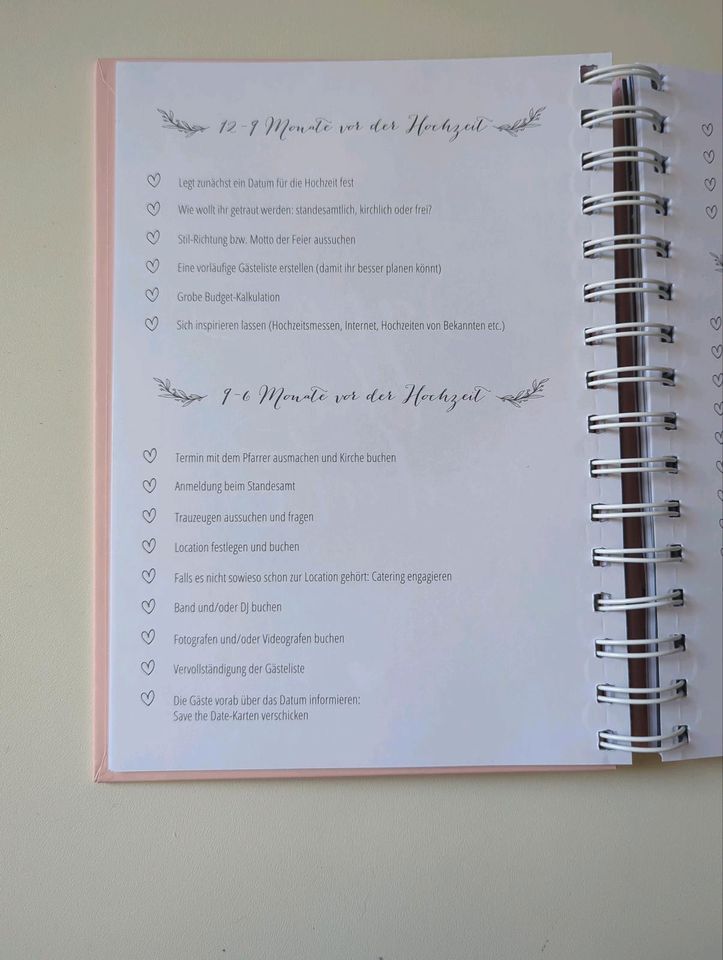 12-9 Monate vor der Hochzeit
Legt zunächst ein Datum für die Hochzeit fest
Wie wollt ihr getraut werden: standesamtlich, kirchlich oder frei?
Stil-Richtung bzw. Motto der Feier aussuchen
Eine vorläufige Gästeliste erstellen (damit ihr besser planen könnt)
Grobe Budget-Kalkulation
Sich inspirieren lassen (Hochzeitsmessen, Internet, Hochzeiten von Bekannten etc.)
9-6 Monate vor der Hochzeit
Termin mit dem Pfarrer ausmachen und Kirche buchen
Anmeldung beim Standesamt
Trauzeugen aussuchen und fragen
Location festlegen und buchen
Falls es nicht sowieso schon zur Location gehört: Catering engagieren
Band und/oder DJ buchen
Fotografen und/oder Videografen buchen
Vervollständigung der Gästeliste
Die Gäste vorab über das Datum informieren:
Save the Date-Karten verschicken